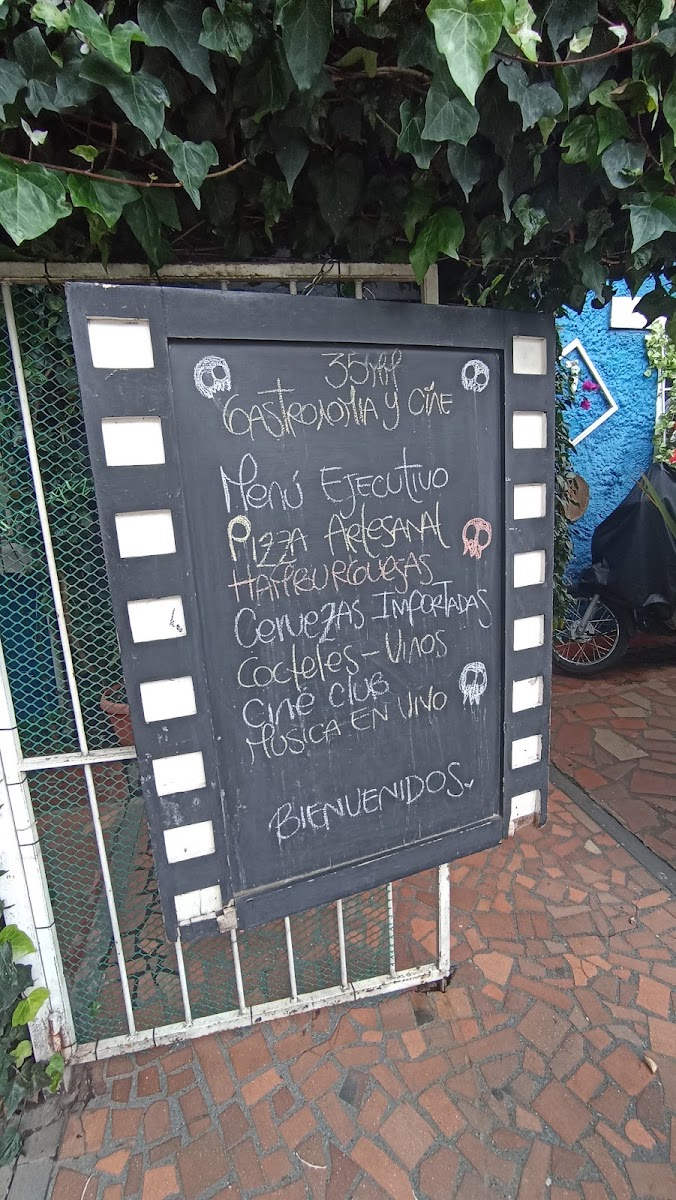 35MM
GASTRONOMIA Y CINE
MENÚ EJECUTIVO
PIZZA ARTESANAL
HAMBURGUESAS
CERVEZAS IMPORTADAS
COCTELES - VINOS
CINE CLUB
MÚSICA EN VIVO
BIENVENIDOS